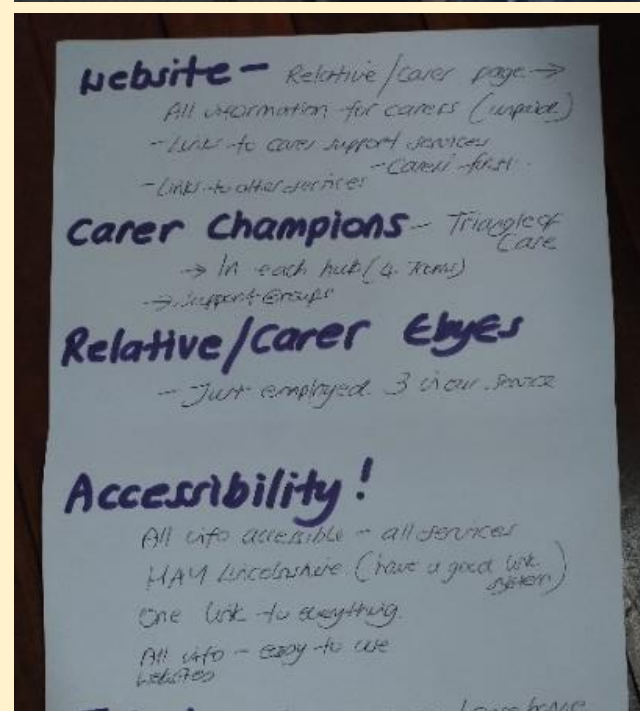 Website - Relative/Carer page →
All information for carers (unpaid)
- Links to carer support services
- Carers first.
- Links to other services
Carer Champions - Triangle of
Care
→ In each hub (4 Teams)
→ Support Groups
Relative/Carer EbyEs
- Just employed 3 in our service
Accessibility!
All info accessible - all services
HAY Lincolnshire (have a good link
system)
One link to everything.
All info - easy to use
websites